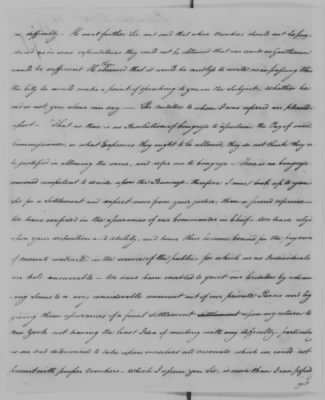 no difficulty. He went further Sir and said that where Vouchers should not be
in some expenditures they could not be obtained that our words as Gentlemen
would be sufficient He observed that it would be needless to write as in passing thro
the City he would make a point of speaking to you on the Subject, whether he
did or not you alone can say — The Auditors to whom I was referred are pleased
report — That as there is no Resolution of Congress to ascertain the Pay of said
Commissioners, or what Expences they ought to be allowed, they do not think they
justified in allowing the same, and refer me to Congress — There is no Congress
convened competent to decide upon the Business — therefore I must look up to you
Sir for a Settlement and expect more from your justice, than a friend
We have confided in the assurances of our Commander in Chief. We have
upon your disposition and ability, and have there became bound for the payment
of several contracts in the service of the public for which we as Individuals
are held answerable — We have been enabled to quiet our Creditors by advan-
cing Sums to a very considerable amount out of our private Purses and by
giving them assurances of a final Settlement upon my return to
New York not having the least Idea of meeting with any difficulty, particularly
as we had determined to take upon ourselves all accounts which we could not
present with proper Vouchers. Which I assure you Sir, is more than I can